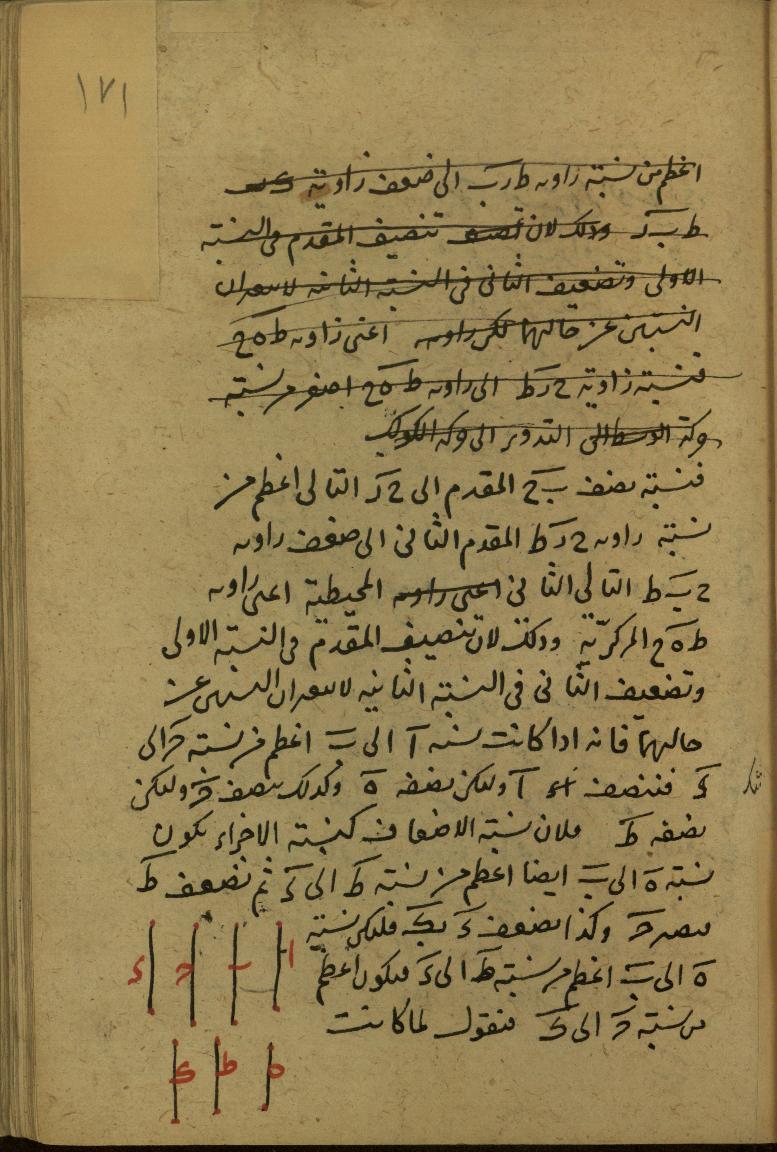 ١٧١
اعظم من نسبة زاوية ط ر ب الى ضعف زاوية
ط ب ر وذلك لان تنصيف المقدم في النسبة
الاولى وتضعيف الثاني في النسبة الثانيه لا يغيران
النسبتين عن حالهما لكن زاويه اعنى زاويه ط ه ح
فنسبة زاوية ح ر ط الى زاويه ط ه ح اصغر من نسبة
حركة التدوير الى حركة الكوكب
فنسبة نصف ب ح المقدم الى ح ر التالى اعظم من
نسبة زاويه ح ر ط المقدم الثاني الى ضعف زاويه
ح ب ط التالى الثانى اعنى زاويه المحيطية اعنى زاويه
ط ه ح المركزية وذلك لان تنصيف المقدم في النسبة الاولى
وتضعيف الثانى فى النسبة الثانيه لا يغيران النسبتين عن
حالهما فانه اذا كانت نسبة آ الى ب اعظم من نسبة ح الى
ء فننصف آ وليكن نصفه ه وكذلك ننصف ح وليكن
نصفه ط فلان نسبة الاضعاف كنسبة الاجزاء يكون
نسبة ه الى ب ايضا اعظم من نسبة ط الى ء ثم نضعف ط
فيصير ح وكذا نضعف ء بك فليكن نسبة
ه الى ب اعظم من نسبة ط الى ء فيكون اعظم
من نسبة ح الى ك فنقول لما كانت
ا ب ح ء
ه ط ك